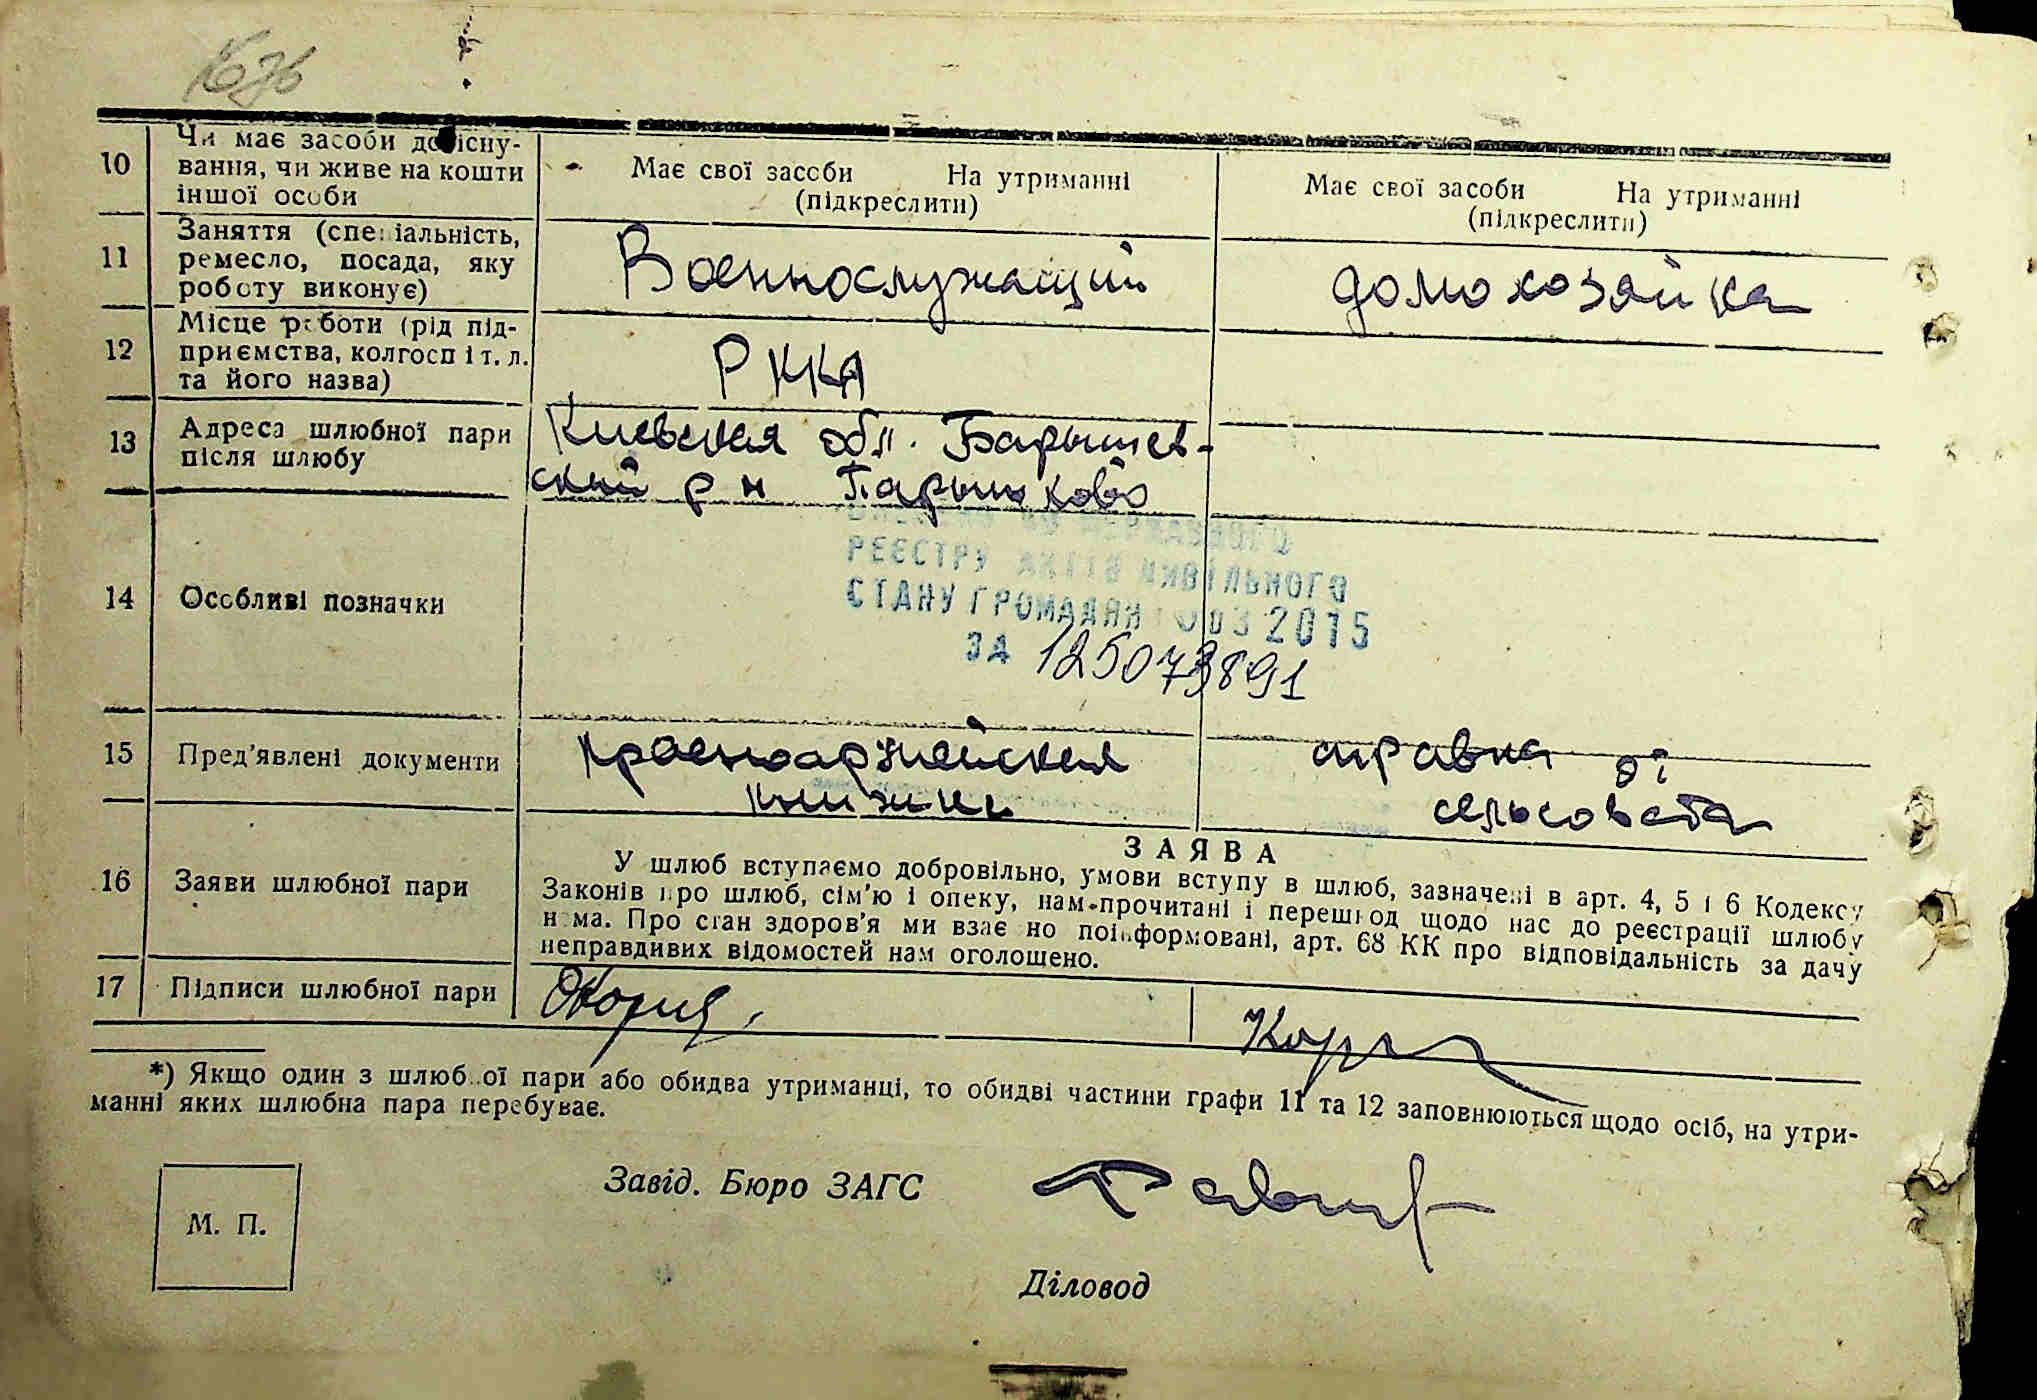 10
Чи має засоби до існу-
вання, чи живе на кошти
іншої особи
Має свої засоби На утриманні
(підкреслити)
Має свої засоби На утриманні
(підкреслити)
11
Заняття (спеціальність,
ремесло, посада, яку
роботу виконує)
Военнослужащий
домохозяйка
12
Місце роботи (рід під-
приємства, колгосп і т. л.
та його назва)
РККА
13
Адреса шлюбної пари
після шлюбу
Киевская обл. Барышев-
ский р н
14
Особливі позначки
ДЕРЖАВНОГО
РЕЄСТРУ АКТІВ ЦИВІЛЬНОГО
СТАНУ ГРОМАДЯН 03 2015
ЗА 125073891
15
Пред'явлені документи
красноармейская
книжка
справка от
сельсовета
16
Заяви шлюбної пари
ЗАЯВА
У шлюб вступаємо добровільно, умови вступу в шлюб, зазначені в арт. 4, 5 і 6 Кодексу
Законів про шлюб, сім'ю і опеку, нам прочитані і перешкод щодо нас до реєстрації шлюбу
нема. Про стан здоров'я ми взаємно поінформовані, арт. 68 КК про відповідальність за дачу
неправдивих відомостей нам оголошено.
17
Підписи шлюбної пари
*) Якщо один з шлюбної пари або обидва утриманці, то обидві частини графи 11 та 12 заповнюються щодо осіб, на утри-
манні яких шлюбна пара перебуває.
М. П.
Завід. Бюро ЗАГС
Діловод